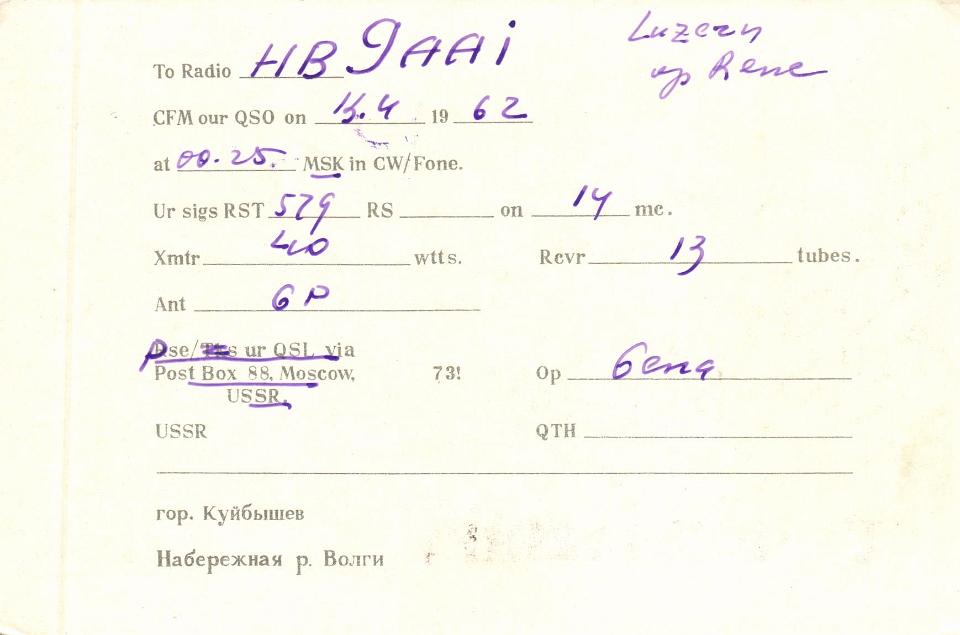 Luzern
op Rene
To Radio HB9AAI
CFM our QSO on 15.4 1962
at 00.25. MSK in CW/Fone.
Ur sigs RST 579 RS on 14 mc.
Xmtr 40 wtts. Rcvr 13 tubes.
Ant GP
Pse/Tks ur QSL via
Post Box 88, Moscow, 73! Op Gena
USSR.
USSR QTH
гор. Куйбышев
Набережная р. Волги